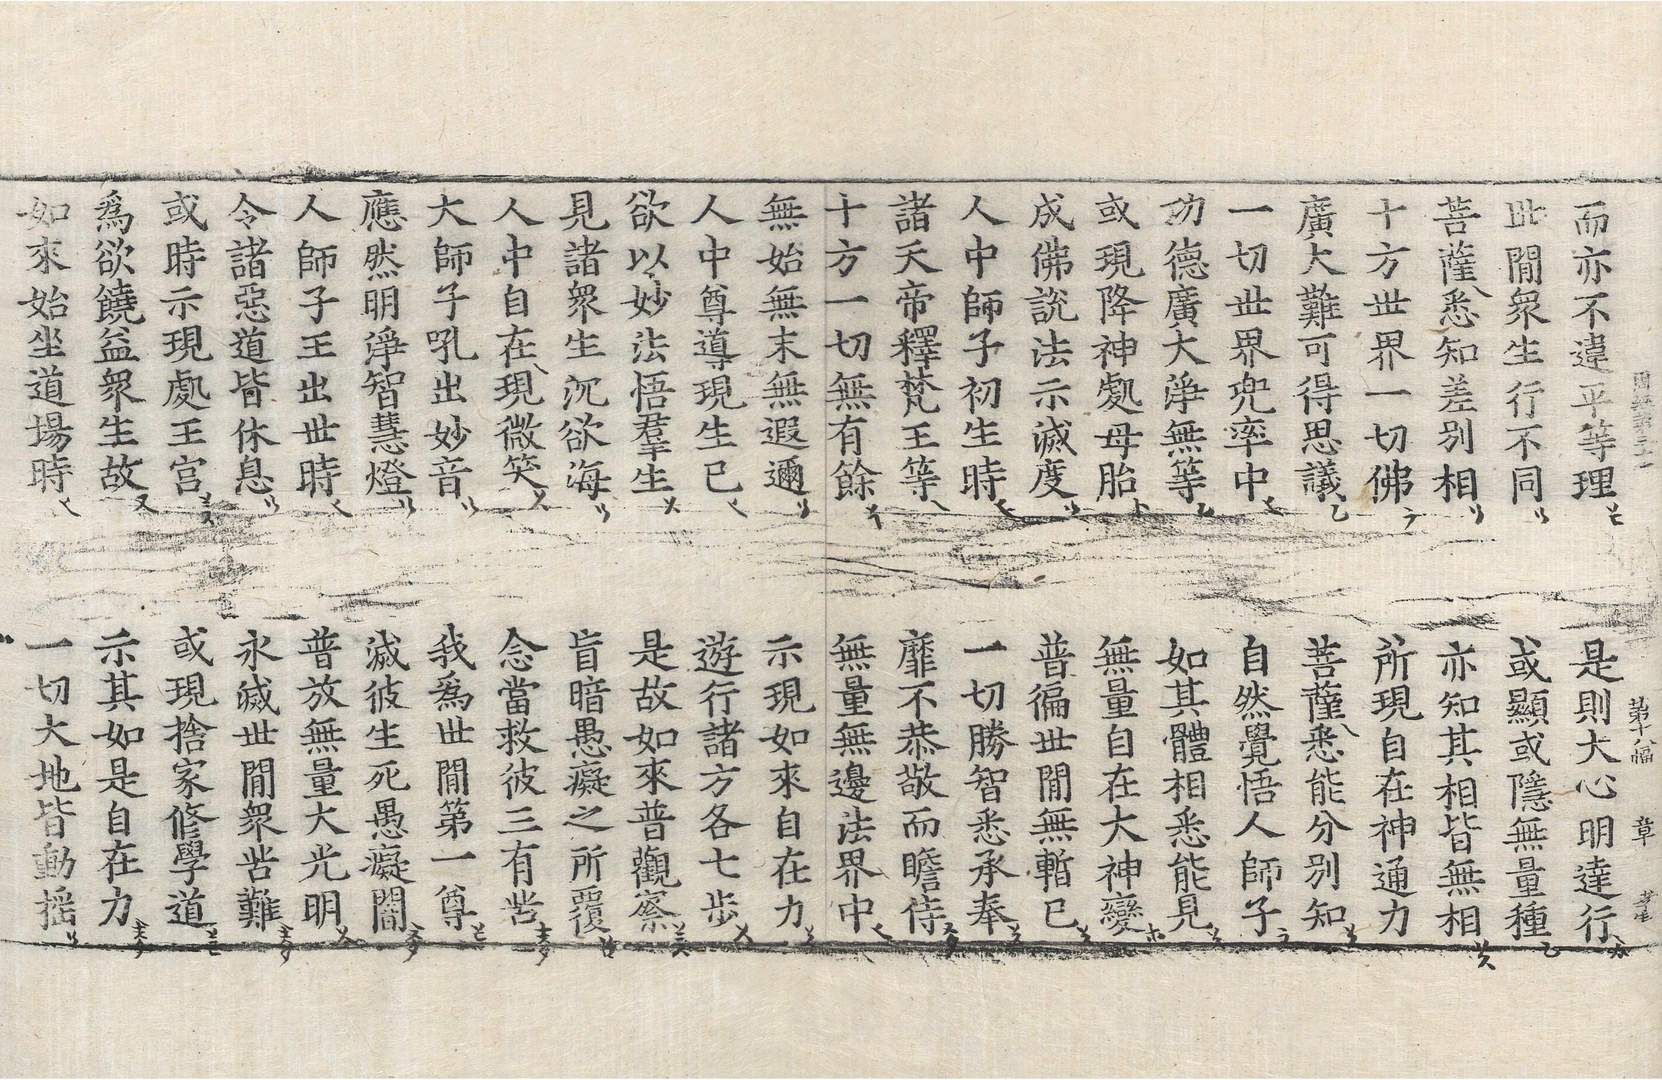 第十八幅 章
而亦不違平等理 是則大心明達行
此閒衆生行不同 或顯或隱無量種
菩薩悉知差別相 亦知其相皆無相
十方世界一切佛 所現自在神通力
廣大難可得思議 菩薩悉能分別知
一切世界兜率中 自然覺悟人師子
功德廣大淨無等 如其體相悉能見
或現降神處母胎 無量自在大神變
成佛說法示滅度 普徧世閒無暫已
人中師子初生時 一切勝智悉承奉
諸天帝釋梵王等 靡不恭敬而瞻侍
十方一切無有餘 無量無邊法界中
無始無末無遐邇 示現如來自在力
人中尊導現生已 遊行諸方各七步
欲以妙法悟羣生 是故如來普觀察
見諸衆生沉欲海 盲暗愚癡之所覆
人中自在現微笑 念當救彼三有苦
大師子吼出妙音 我爲世閒第一尊
應然明淨智慧燈 滅彼生死愚癡闇
人師子王出世時 普放無量大光明
令諸惡道皆休息 永滅世閒衆苦難
或時示現處王宮 或現捨家修學道
爲欲饒益衆生故 示其如是自在力
如來始坐道場時 一切大地皆動搖